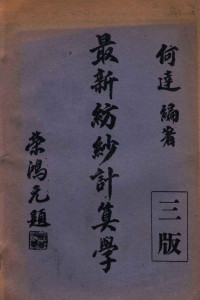 何達編著
最新紡紗計算學
三版
榮鴻元題